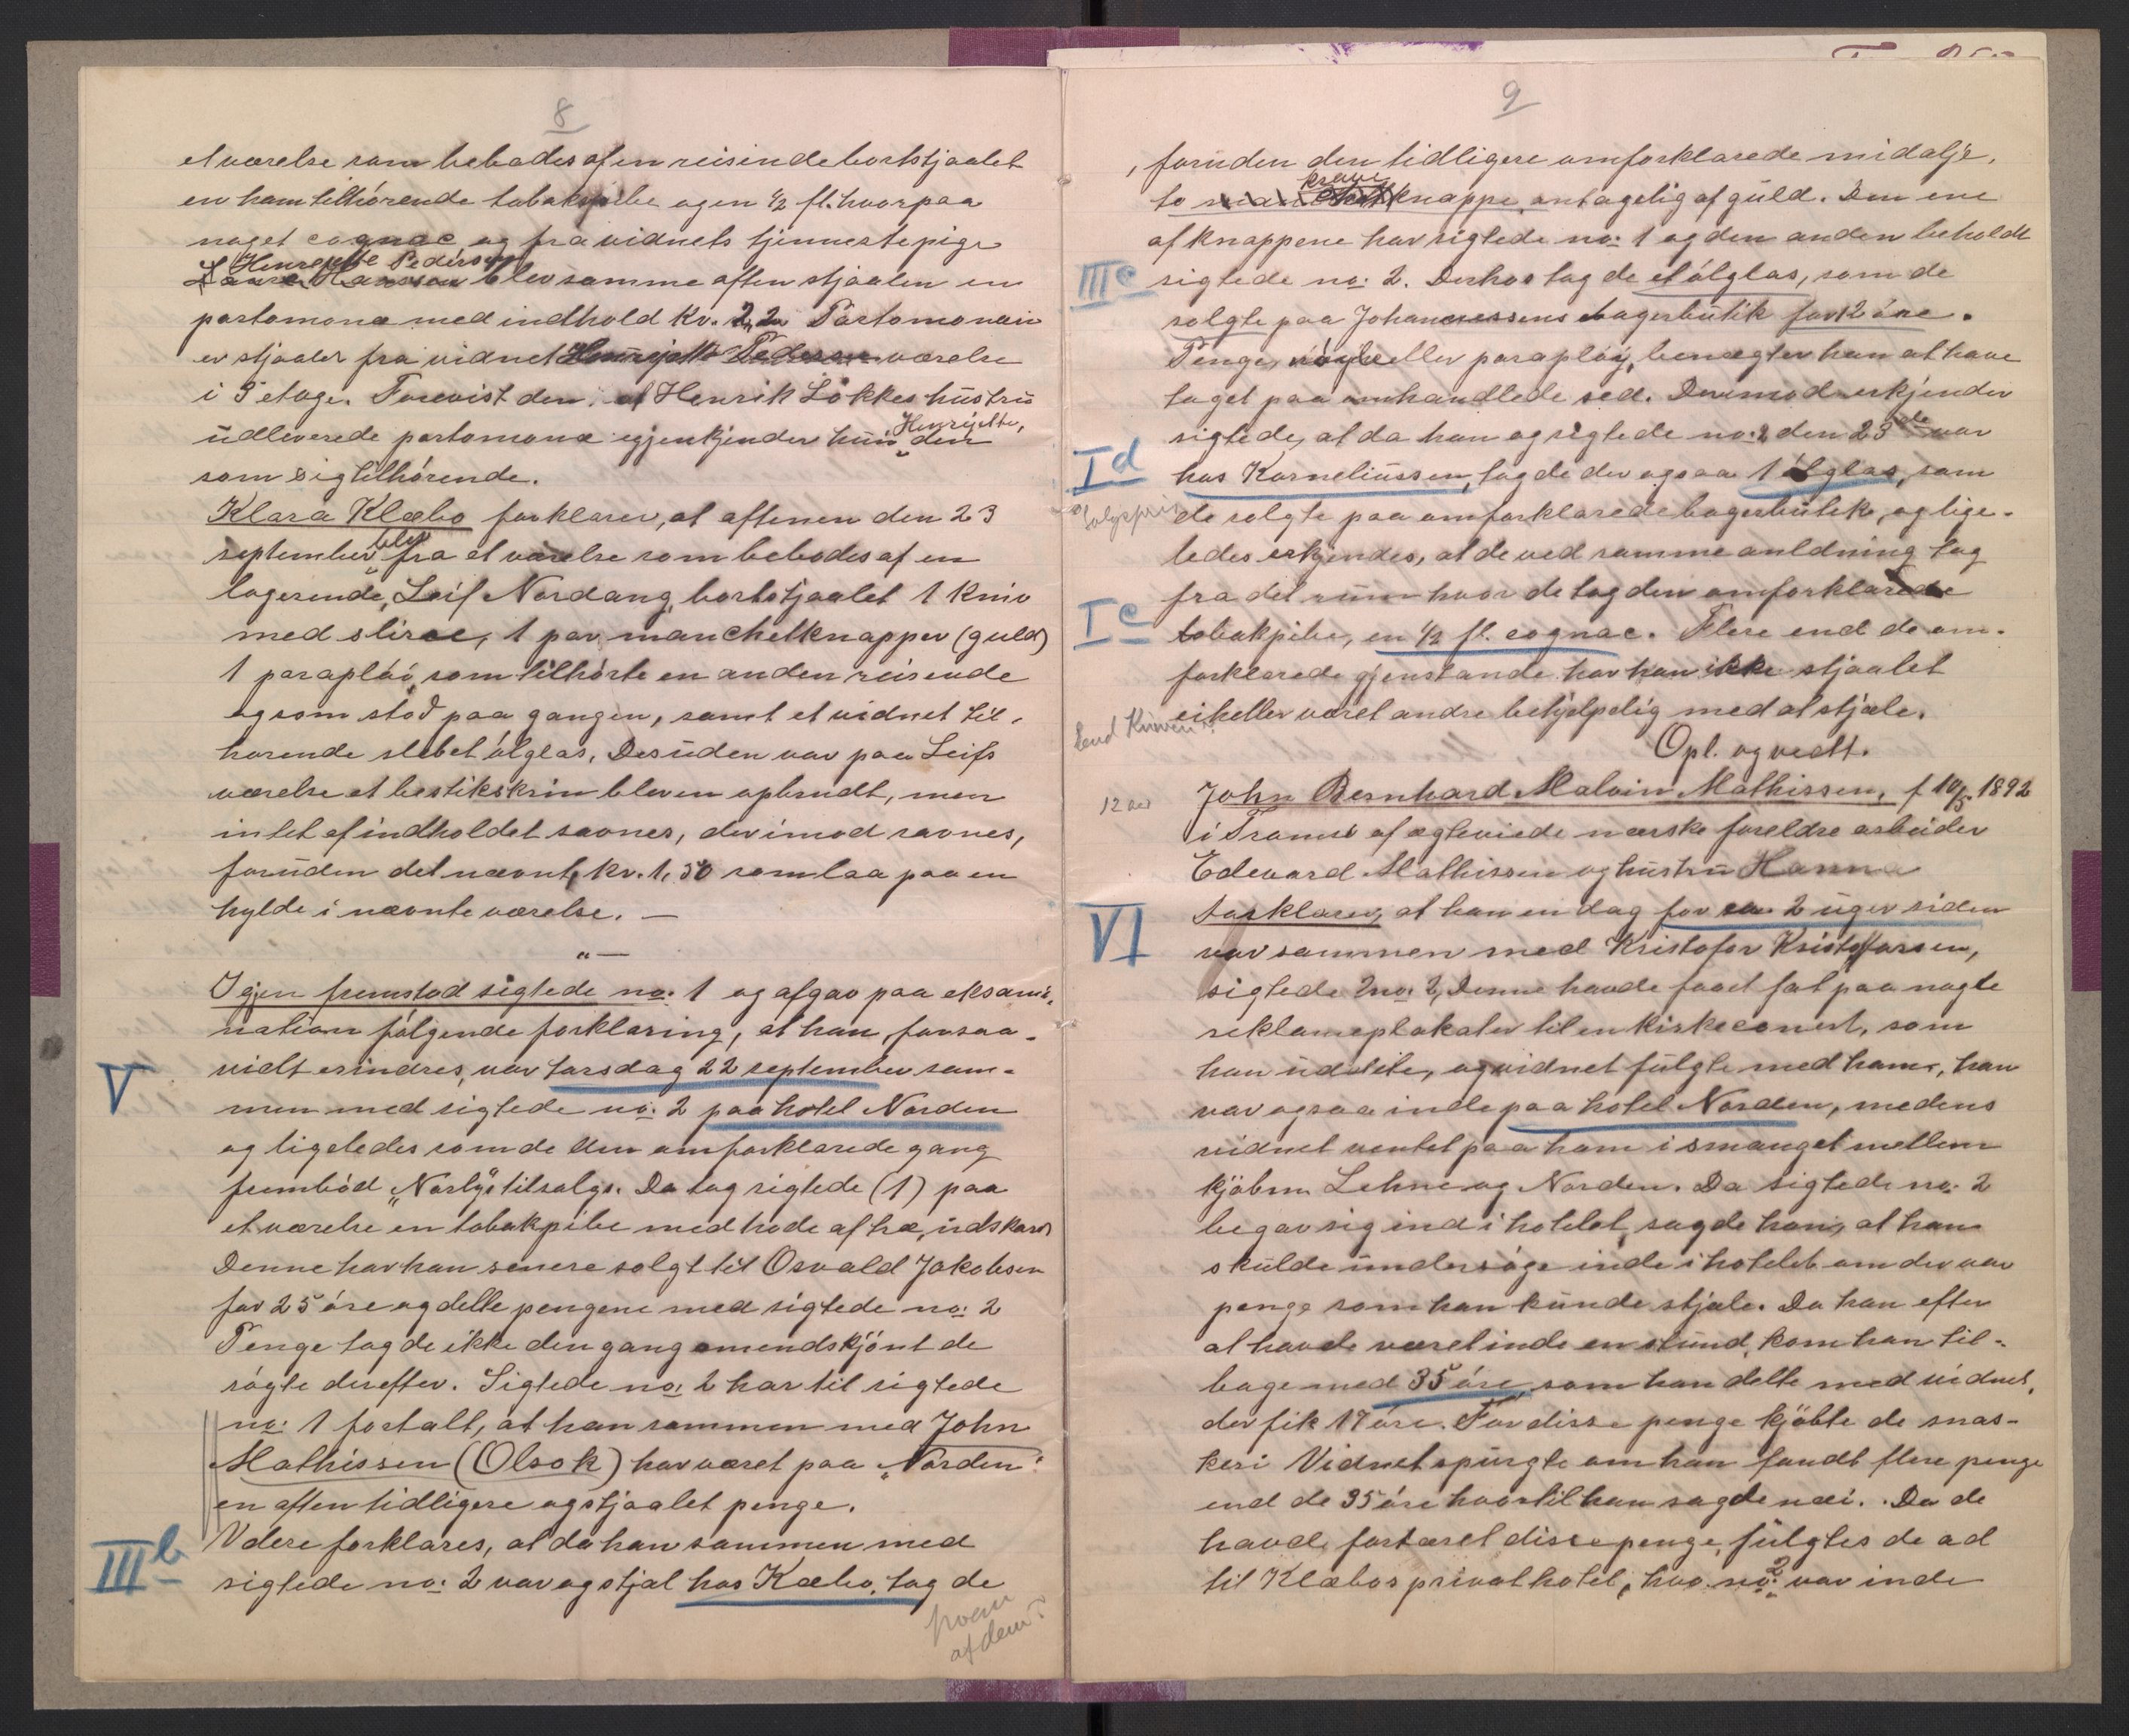 8
et værelse som bebodes af en reisende bortstjaalet
en ham tilhörende tobakspibe og en ½ fl. hvorpaa
noget cognac og fra vidnets tjennestepige
Henrejette Pedersen
Laura Hansson blev samme aften stjaalen en
portomonæ med indhold Kr. 2,20 Portomonæn
er stjaalet fra vidnet Henrejette Pedersen værelse
i 3 etage. Forevist den af Henrik Lökkes hüstrü
üdleverede portomonæ igjenkjender hün, Henrejette, den
som sig tilhörende.
Klara Klæbo forklarer, at aftenen den 23
september blev fra et værelse som bebodes af en
logerende, Leif Nordang, bortstjaalet 1 Kniv
med slire, 1 par manchetknapper (guld)
1 paraplöi, som tilhörte en anden reisende
og som stod paa gangen, samt et vidnet til-
hörende slebet ölglas, Desüden var paa Leifs
værelse et bestikskrin bleven opbrudt, men
intet af indholdet savnes, derimod savnes,
forüden det nævnte, kr. 1,50 som laa paa en
hylde i nævnte værelse. —
"—
Igjen fremstod sigtede no: 1 og afgav paa eksami-
nation fölgende forklaring, at han, forsaa-
V
vidt erindres, var torsdag 22 september sam-
men med sigtede no: 2 paa hotel Norden
og ligeledes som de den omforklarede gang
frembød „Norlys" tilsalgs. Da tog sigtede (1) paa
et værelse en tobakpibe med hode af træ, üdskaret
Denne har han senere solgt til Osvald Jakobsen
for 25 öre og delte pengene med sigtede no: 2
Penge tog de ikke den gang omendskjönt de
sögte derefter. Sigtede no: 2 har til sigtede
no: 1 fortalt, at han sammen med John
Mathissen (Olsok) har været paa „Norden"
en aften tidligere og stjaalet penge.
IIIb
Videre forklares, at da han sammen med
sigtede no: 2 var og stjal hos Klæbo, tog de
hvem
af dem?
9
, forüden den tidligere omforklarede midalje,
to krave knappe, antagelig af güld. Den ene
af knappene har sigtede no: 1 og den anden beholdt
IIIc
sigtede no: 2. Derhos tog de et ölglas, som de
solgte paa Johannessens bagerbütik for 12 öre.
Penge, eller paraplöi, benægter han at have
taget paa omhandlede sted. Derimod erkjender
sigtede, at da han og sigtede no: 2 den 23de var
Id
hos Korneliüssen, tog de der ogsaa 1 ölglas, som
Salgspris
de solgte paa omforklarede bagerbütik, og lige-
ledes erkjendes, at de ved samme anldning tog
fra det rüm hvor de tog den omforklarede
Ic
tobakpibe, en ½ fl. cognac. Flere end de om-
forklarede gjenstande har han ikke stjaalet
eiheller været andre behjelpelig med at stjæle.
End Kniven?
Opl. og vedt.
12 aar
John Bernhard Malvin Mathissen, f 10/5. 1892
i Tromsö af ægteviede norske foreldre arbeider
Edevard Mathissen og hüstrü Hanna
VI
forklarer, at han en dag for ca. 2 üger siden
var sammen med Kristofor Kristoffersen,
sigtede no: 2, Denne havde faaet fat paa nogle
reklameplakater til en kirkeconsert, som
han üddelte, og vidnet fülgte med ham, han
var ogsaa inde paa hotel Norden, medens
vidnet ventet paa ham i smauget mellem
kjöbm. Lehne og Norden. Da sigtede no: 2
begav sig ind i hotelet, sagde han, at han
skülde ündersöge inde i hotelet om der var
penge som han künde stjæle. Da han efter
at havde været inde en stünd, kom han til-
bage med 35 öre, som han delte med vidnet,
der fik 17 öre. For disse penge kjöbte de snas-
keri Vidnet spürgte om han fandt flere penge
end de 35 öre hvortil han sagde nei. Da de
havde fortæret disse penge, fülgtes de ad
til Klæbos privathotel, hvo. no: 2 var inde